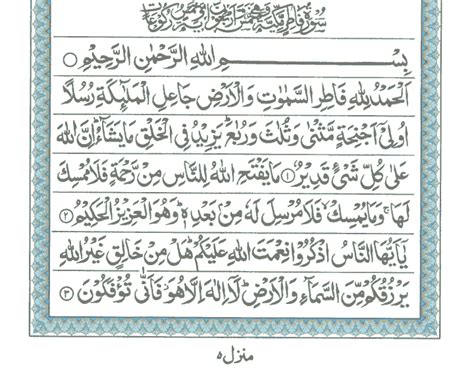 سُوْرَةُ فَاطِرٍ مَكِّيَّةٌ وَّهِيَ خَمْسٌ وَّاَرْبَعُوْنَ اٰيَةً وَّخَمْسُ رُكُوْعَاتٍ
بِسْمِ اللّٰهِ الرَّحْمٰنِ الرَّحِيْمِ ○
اَلْحَمْدُ لِلّٰهِ فَاطِرِ السَّمٰوٰتِ وَالْاَرْضِ جَاعِلِ الْمَلٰٓئِكَةِ رُسُلًا
اُولِيْٓ اَجْنِحَةٍ مَّثْنٰى وَثُلٰثَ وَرُبٰعَ ؕ يَزِيْدُ فِى الْخَلْقِ مَا يَشَآءُ ؕ اِنَّ اللّٰهَ
عَلٰى كُلِّ شَىْءٍ قَدِيْرٌ ۝۱ مَا يَفْتَحِ اللّٰهُ لِلنَّاسِ مِنْ رَّحْمَةٍ فَلَا مُمْسِكَ
لَهَا ۚ وَمَا يُمْسِكْ ۙ فَلَا مُرْسِلَ لَهٗ مِنْۢ بَعْدِهٖ ؕ وَهُوَ الْعَزِيْزُ الْحَكِيْمُ ۝۲
يٰۤاَيُّهَا النَّاسُ اذْكُرُوْا نِعْمَتَ اللّٰهِ عَلَيْكُمْ ؕ هَلْ مِنْ خَالِقٍ غَيْرُ اللّٰهِ
يَرْزُقُكُمْ مِّنَ السَّمَآءِ وَالْاَرْضِ ؕ لَاۤ اِلٰهَ اِلَّا هُوَ ۖ فَاَنّٰى تُؤْفَكُوْنَ ۝۳
منزل ۵